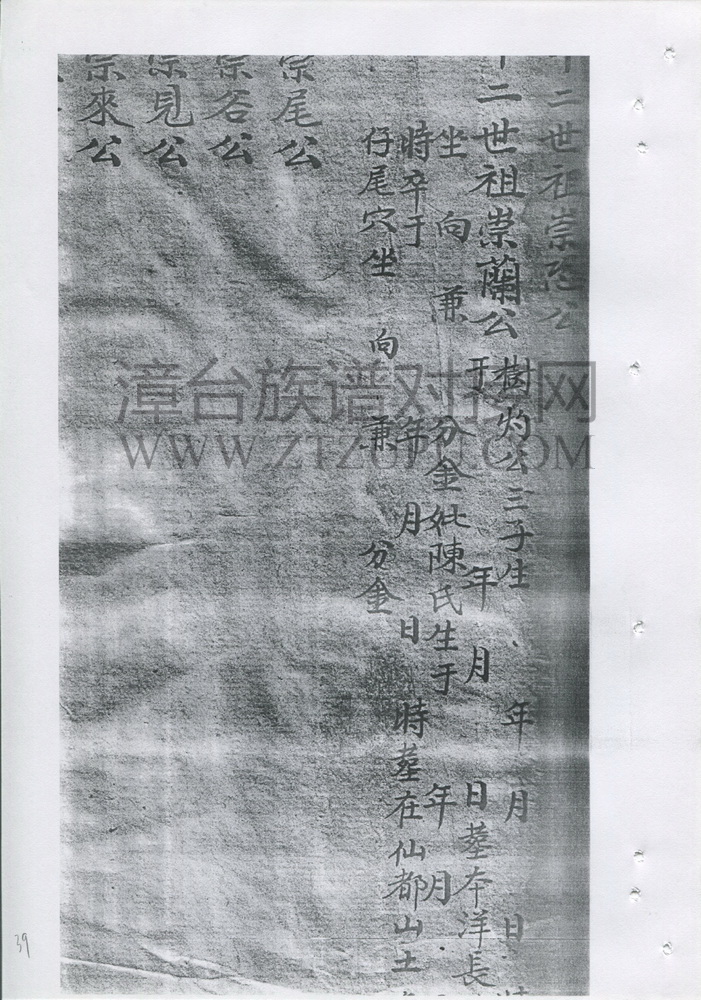 二世祖崇公
二世祖崇蘭公 樹灼公三子生 年 月 日
于 年 月 日葬本洋長
坐 向 兼 分金妣陳氏生于 年 月
時卒于 年 月 日 時葬在仙都山土
仔尾穴坐 向 兼 分金
宗尾公
宗谷公
宗見公
宗來公
漳台族谱对接网
WWW.ZTZUPU.COM
39